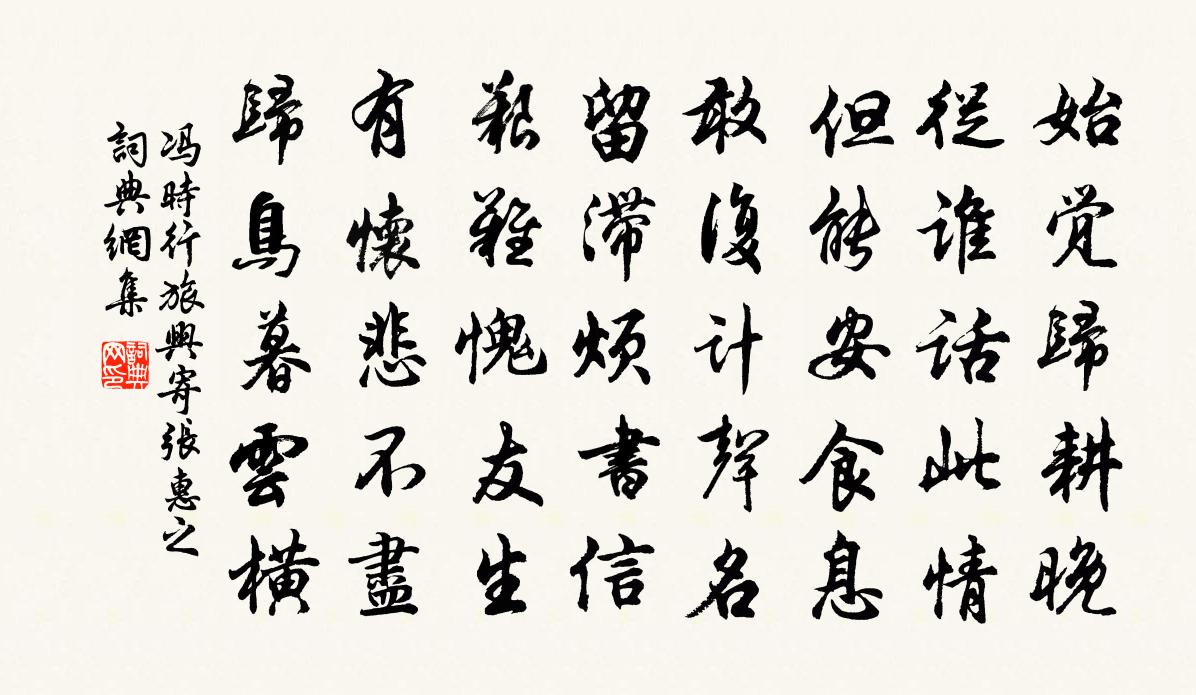 始觉歸耕晚
從誰話此情
但能安食息
敢復計聲名
留滯煩書信
艱難愧友生
有懷悲不盡
歸鳥暮雲橫
冯時行旅興寄張惠之
詞典網集
詞典
网印